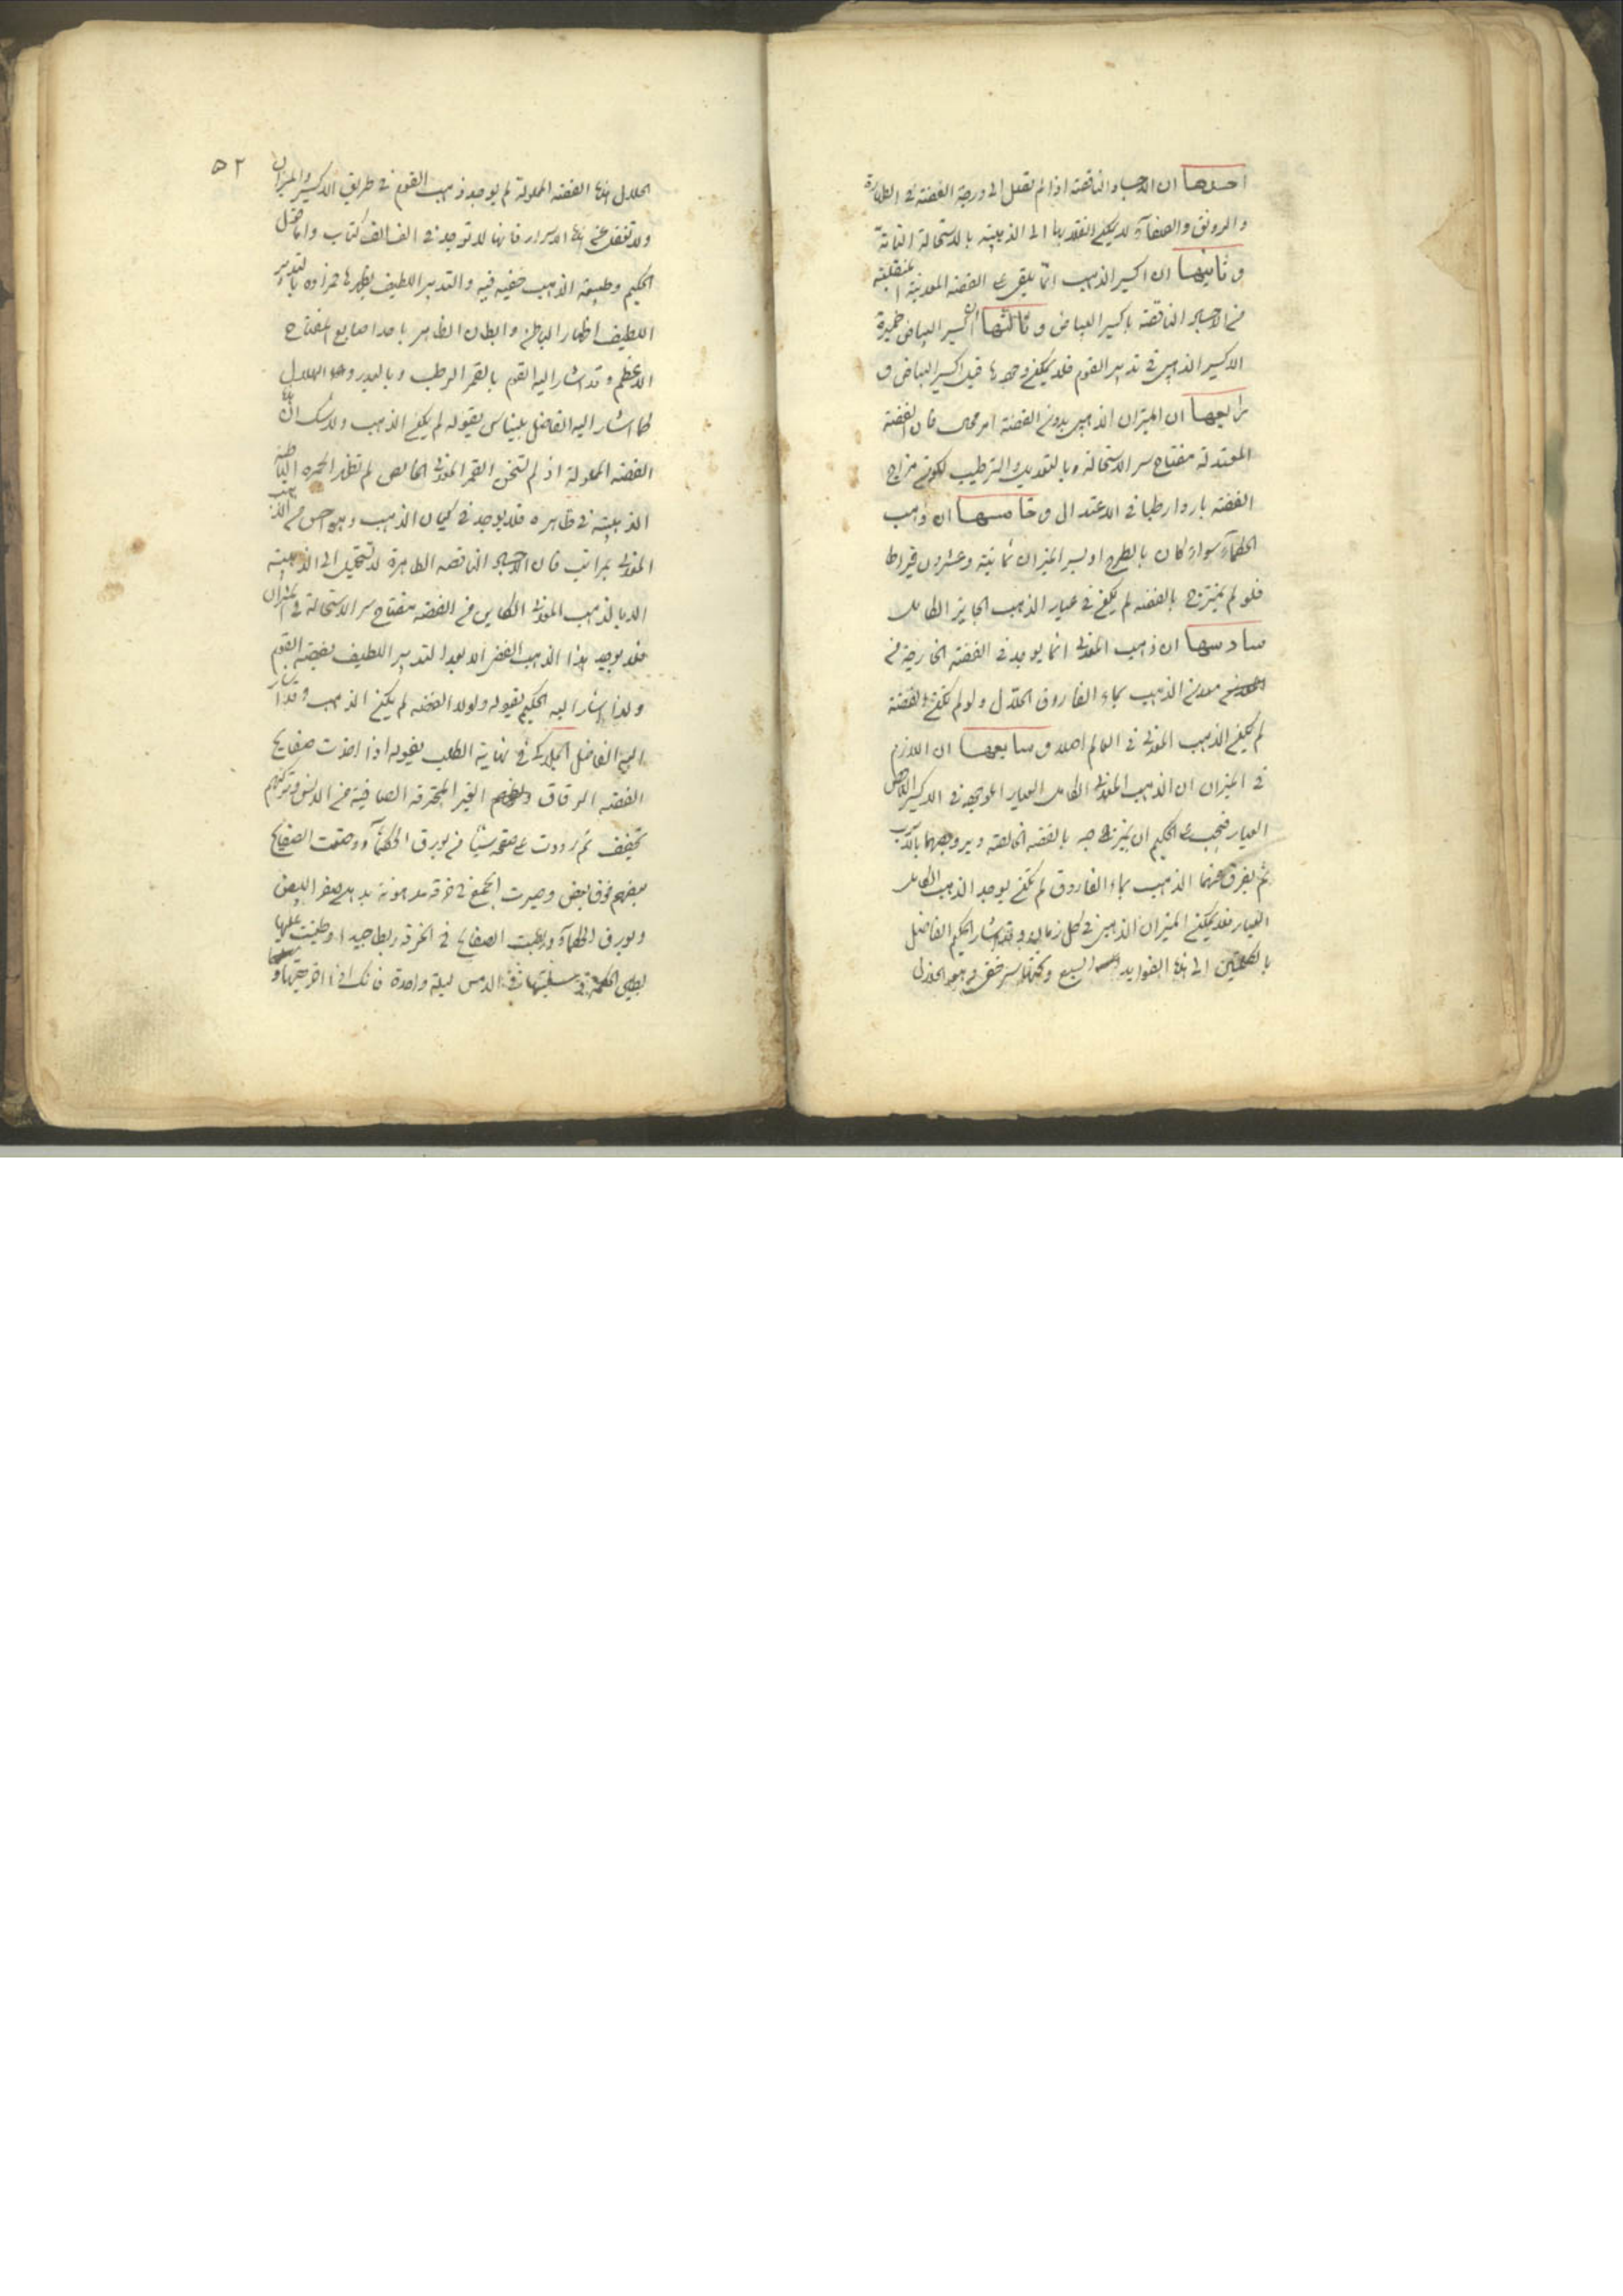 احدها ان الاجساد الناقصة اذا لم تصل الى درجة الفضة فى الطهارة
والرونق والصفاء لا يمكن انقلابها الى الذهبية بالاستحالة التامة
و ثانيها ان اكسير الذهب انما يلقى على الفضة المعدنية المنقلبة
من الاجساد الناقصة باكسير البياض و ثالثها ان اكسير البياض خميرة
الاكسير الذهبى فى تدبير القوم فلا يمكن وجودها قبل اكسير البياض و
رابعها ان الميزان الذهبى بدون الفضة امر محال فان الفضة
المعتدلة مفتاح سر الاستحالة وبالتعديل والترطيب لكون مزاج
الفضة باردا رطبا فى الاعتدال و خامسها ان ذهب
الحكماء سواء كان بالطرح او بسر الميزان ثمانية وعشرون قيراطا
فلو لم يمتزج بالفضة لم يكن فى عيار الذهب الجايز الكامل
سادسها ان ذهب المعدنى انما يوجد فى الفضة الخارجة من
معدن الذهب بماء الفاروق الحلال ولو لم تكن الفضة
لم يكن الذهب المعدنى فى العالم اصلا و سابعها ان اللازم
فى الميزان ان الذهب المعدنى الكامل العيار الموجود فى الاكسير الناقص
العيار فيجب على الحكيم ان يمتزجه بالفضة الخالصة ويروجهما بالذوب
ثم يفرق عنهما الذهب بماء الفاروق لم يكن يوجد الذهب الكامل
العيار فلا يمكن الميزان الذهبى فى كل زمان وقد اشار الحكيم الفاضل
بالكلمتين الى هذه الفوايد السبع وتحتها سر خفى هو الحلال
٥٢
الحلال هذه الفضة المحلولة لم يوجد ذهب القوم فى طريق الاكسير والميزان
ولا تغفل عن هذه الاسرار فانها لا توجد فى الف الف كتاب وانما قال
الحكيم وطبيعة الذهب خفية فيه والتدبير اللطيف يظهرها مراده بالتدبير
اللطيف اظهار الباطن وابطان الظاهر باحد اصابع المفتاح
الاعظم وقد اشار اليه القوم بالقمر الرطب وبالبدر وهو الهلال
كما اشار اليه الفاضل بليناس بقوله لم يكن الذهب ولا شك ان هذه
الفضة المحلولة اذ لم تسخن القمر المعدنى الخالص لم تظهر الحمرة الباطنة
الذهبية فى ظاهره فلا يوجد فى كيان الذهب وهو احسن من الذهب
المعدنى بمراتب فان الاجساد الناقصة الطاهرة لا تستحيل الى الذهبية
الا بالذهب المعدنى الكاين من الفضة بمفتاح سر الاستحالة فى الميزان
فلا يوجد هذا الذهب الفضى الا بعد التدبير اللطيف بفضة القوم
ولذا اشار اليه الحكيم بقوله ولولا الفضة لم يكن الذهب وقد اشار
اليه الفاضل الجلدكى فى نهاية الطلب بقوله اذا اخذت صفايح
الفضة الرقاق الغير المحترقة الصافية من الدنس وتركتهم
تجفف ثم زردت على صفحة شيئا من بورق الحكماء ووضعت الصفايح
بعضهم فوق بعض وصيرت الجميع فى خرقة مدهونة بدهن صفر البيض
وبورق الحكماء وربطت الصفايح فى الخرقة ربطا جيدا وطينت عليها
بطين الحكمة فى الدمس ليلة واحدة فانك اذا اخرجتها و